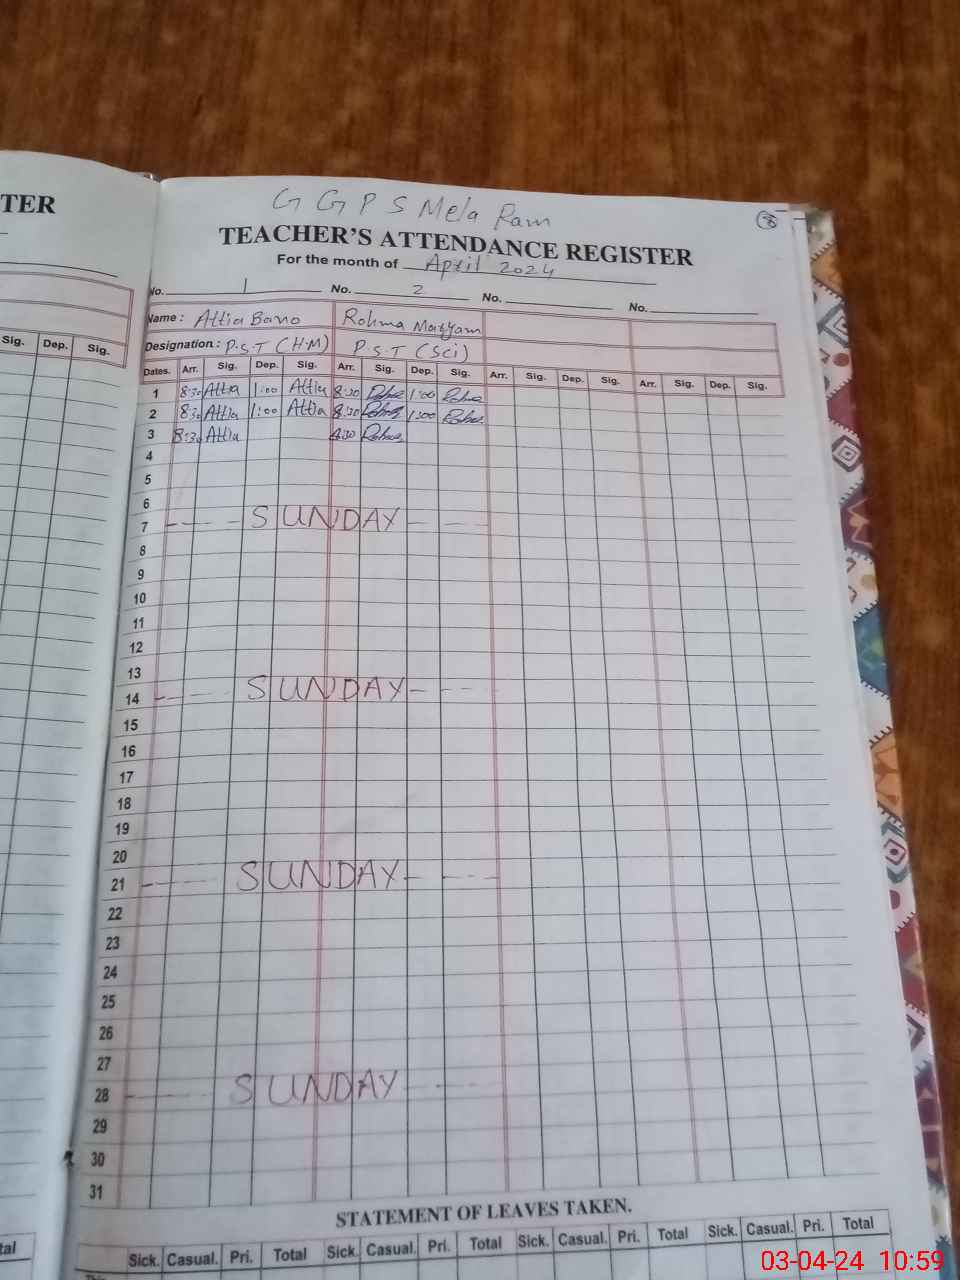 TER
Sig. Dep. Sig.
tal
G G P S Mela Ram
8
TEACHER'S ATTENDANCE REGISTER
For the month of April 2024
No. 1 No. 2 No. No.
Name : Attia Bano Rohma Maryam
Designation : P.S.T (H.M) P.S.T (Sci)
Dates. Arr. Sig. Dep. Sig. Arr. Sig. Dep. Sig. Arr. Sig. Dep. Sig. Arr. Sig. Dep. Sig.
1 8:30 Attia 1:00 Attia 8:30 Rohma 1:00 Rohma
2 8:30 Attia 1:00 Attia 8:30 Rohma 1:00 Rohma
3 8:30 Attia 8:30 Rohma
4
5
6
7 SUNDAY
8
9
10
11
12
13
14 SUNDAY
15
16
17
18
19
20
21 SUNDAY
22
23
24
25
26
27
28 SUNDAY
29
30
31
STATEMENT OF LEAVES TAKEN.
Sick. Casual. Pri. Total Sick. Casual. Pri. Total Sick. Casual. Pri. Total Sick. Casual. Pri. Total
03-04-24 10:59